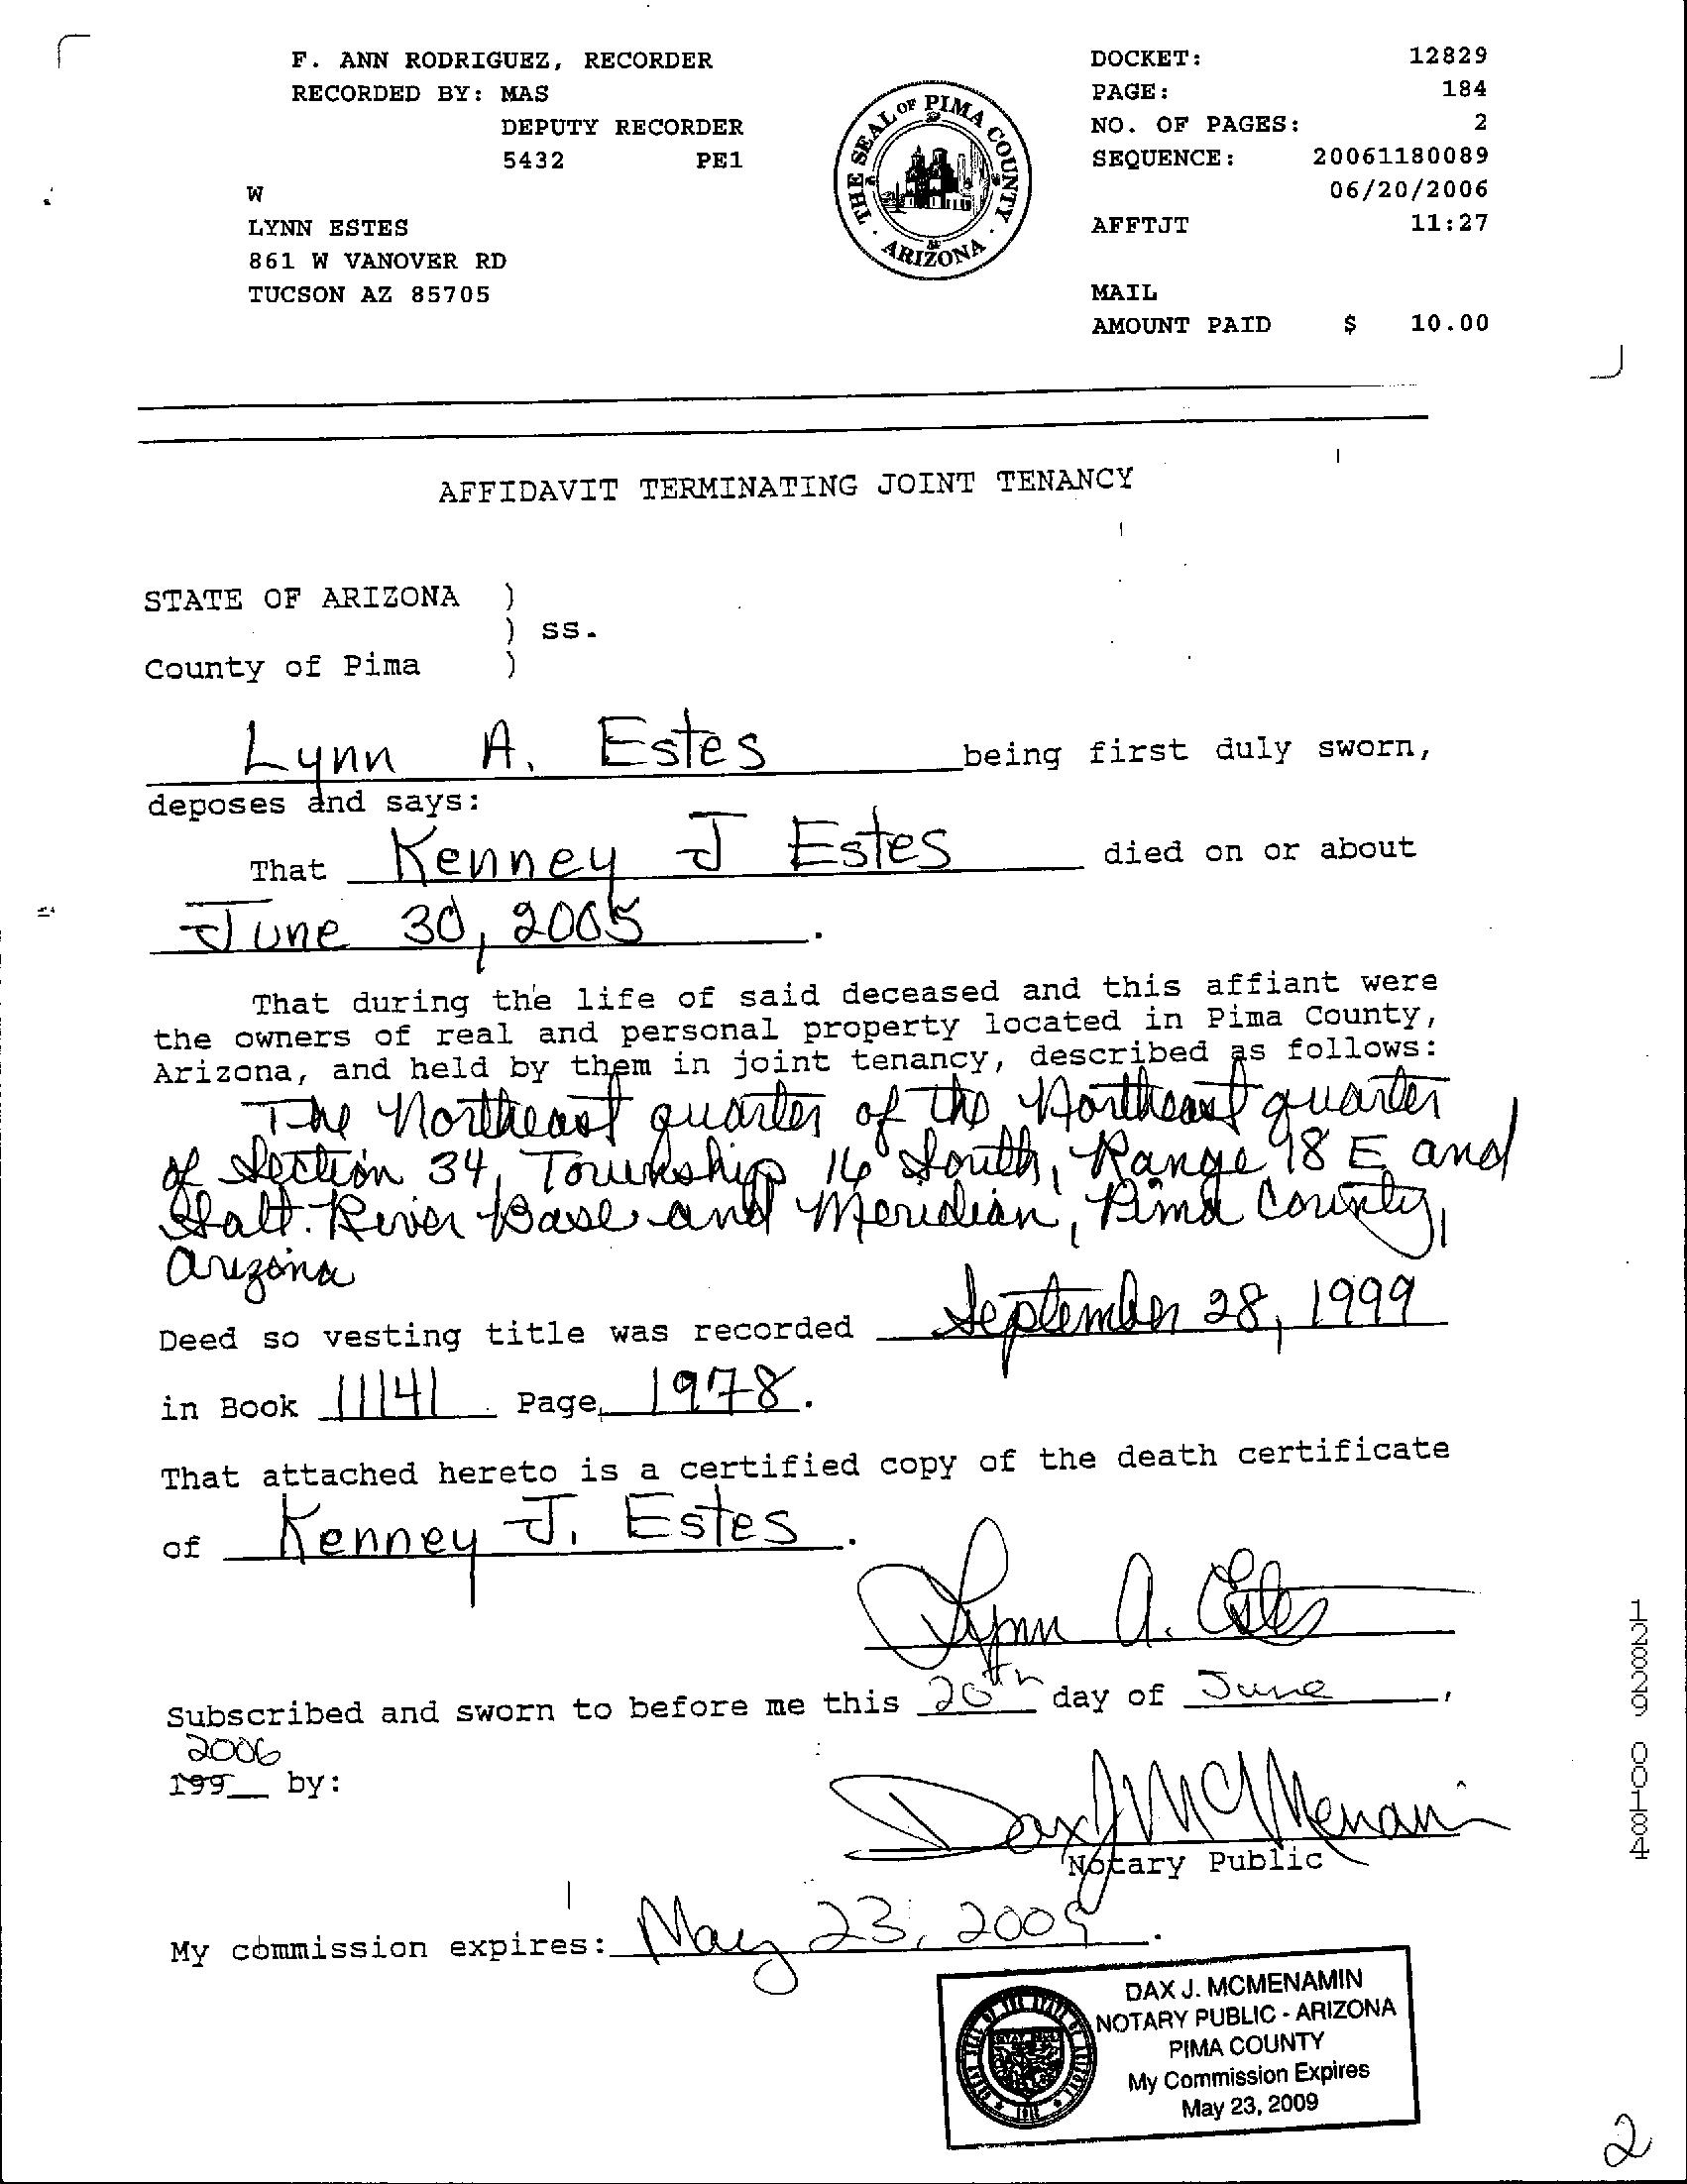 F. ANN RODRIGUEZ, RECORDER
RECORDED BY: MAS
DEPUTY RECORDER
5432 PE1
W
LYNN ESTES
861 W VANOVER RD
TUCSON AZ 85705
THE SEAL OF PIMA COUNTY
ARIZONA
DOCKET: 12829
PAGE: 184
NO. OF PAGES: 2
SEQUENCE: 20061180089
06/20/2006
AFFTJT 11:27
MAIL
AMOUNT PAID $ 10.00
AFFIDAVIT TERMINATING JOINT TENANCY
STATE OF ARIZONA )
) ss.
County of Pima )
Lynn A. Estes being first duly sworn,
deposes and says:
That Kenney J Estes died on or about
June 30, 2005.
That during the life of said deceased and this affiant were
the owners of real and personal property located in Pima County,
Arizona, and held by them in joint tenancy, described as follows:
The Northeast quarter of the Northeast quarter
of Section 34, Township 16 South, Range 18 E and
Salt River Base and Meridian, Pima County,
Arizona
Deed so vesting title was recorded September 28, 1999
in Book 11141 Page 1978.
That attached hereto is a certified copy of the death certificate
of Kenney J. Estes.
Lynn A. Estes
Subscribed and sworn to before me this 20th day of June,
2006
199__ by:
Dax J McMenamin
Notary Public
My commission expires: May 23, 2009.
DAX J. MCMENAMIN
NOTARY PUBLIC - ARIZONA
PIMA COUNTY
My Commission Expires
May 23, 2009
12829 00184
2